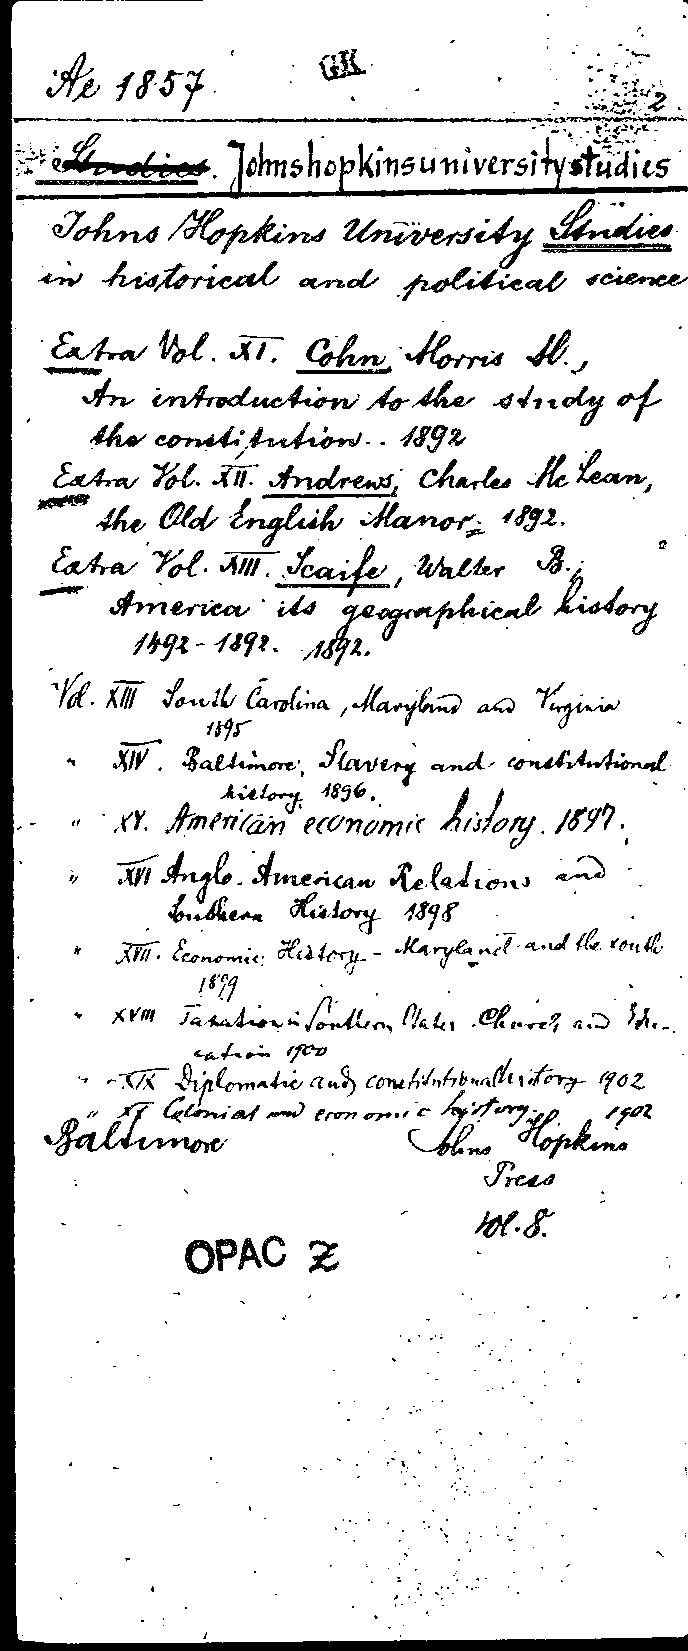 Ae 1857
GK
2
Studies. Johnshopkinsuniversitystudies
Johns Hopkins University Studies
in historical and political science
Extra Vol. XI. Cohn, Morris M.,
An introduction to the study of
the constitution.. 1892
Extra Vol. XII. Andrews, Charles McLean,
the Old English Manor. 1892.
Extra Vol. XIII. Scaife, Walter B.,
America its geographical history
1492-1892. 1892.
Vol. XIII South Carolina, Maryland and Virginia
1895
" XIV. Baltimore, Slavery and constitutional
history. 1896.
" XV. American economic history. 1897.
" XVI Anglo-American Relations and
Southern History 1898
" XVII. Economic History - Maryland and the South
1899
" XVIII Taxation in Southern States. Church and Edu-
cation 1900
" XIX Diplomatic and constitutional history 1902
" XX Colonial and economic history. 1902
Baltimore Johns Hopkins
Press
vol. 8.
OPAC Z